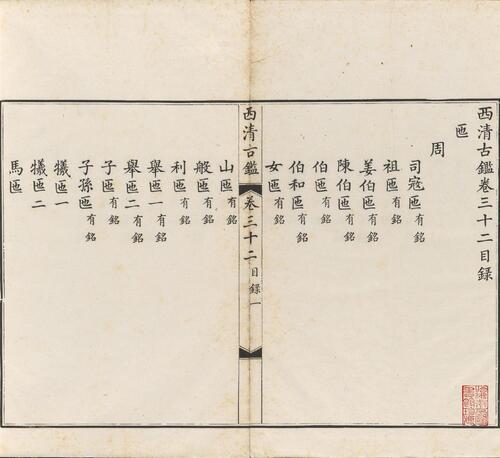 西清古鑑卷三十二目録
匜
周
司寇匜有銘
祖匜有銘
姜伯匜有銘
陳伯匜有銘
伯匜有銘
伯和匜有銘
女匜有銘
西清古鑑
卷三十二
目録
一
山匜有銘
般匜有銘
利匜有銘
舉匜一有銘
舉匜二有銘
子匜有銘
子孫匜有銘
犧匜一
犧匜二
馬匜